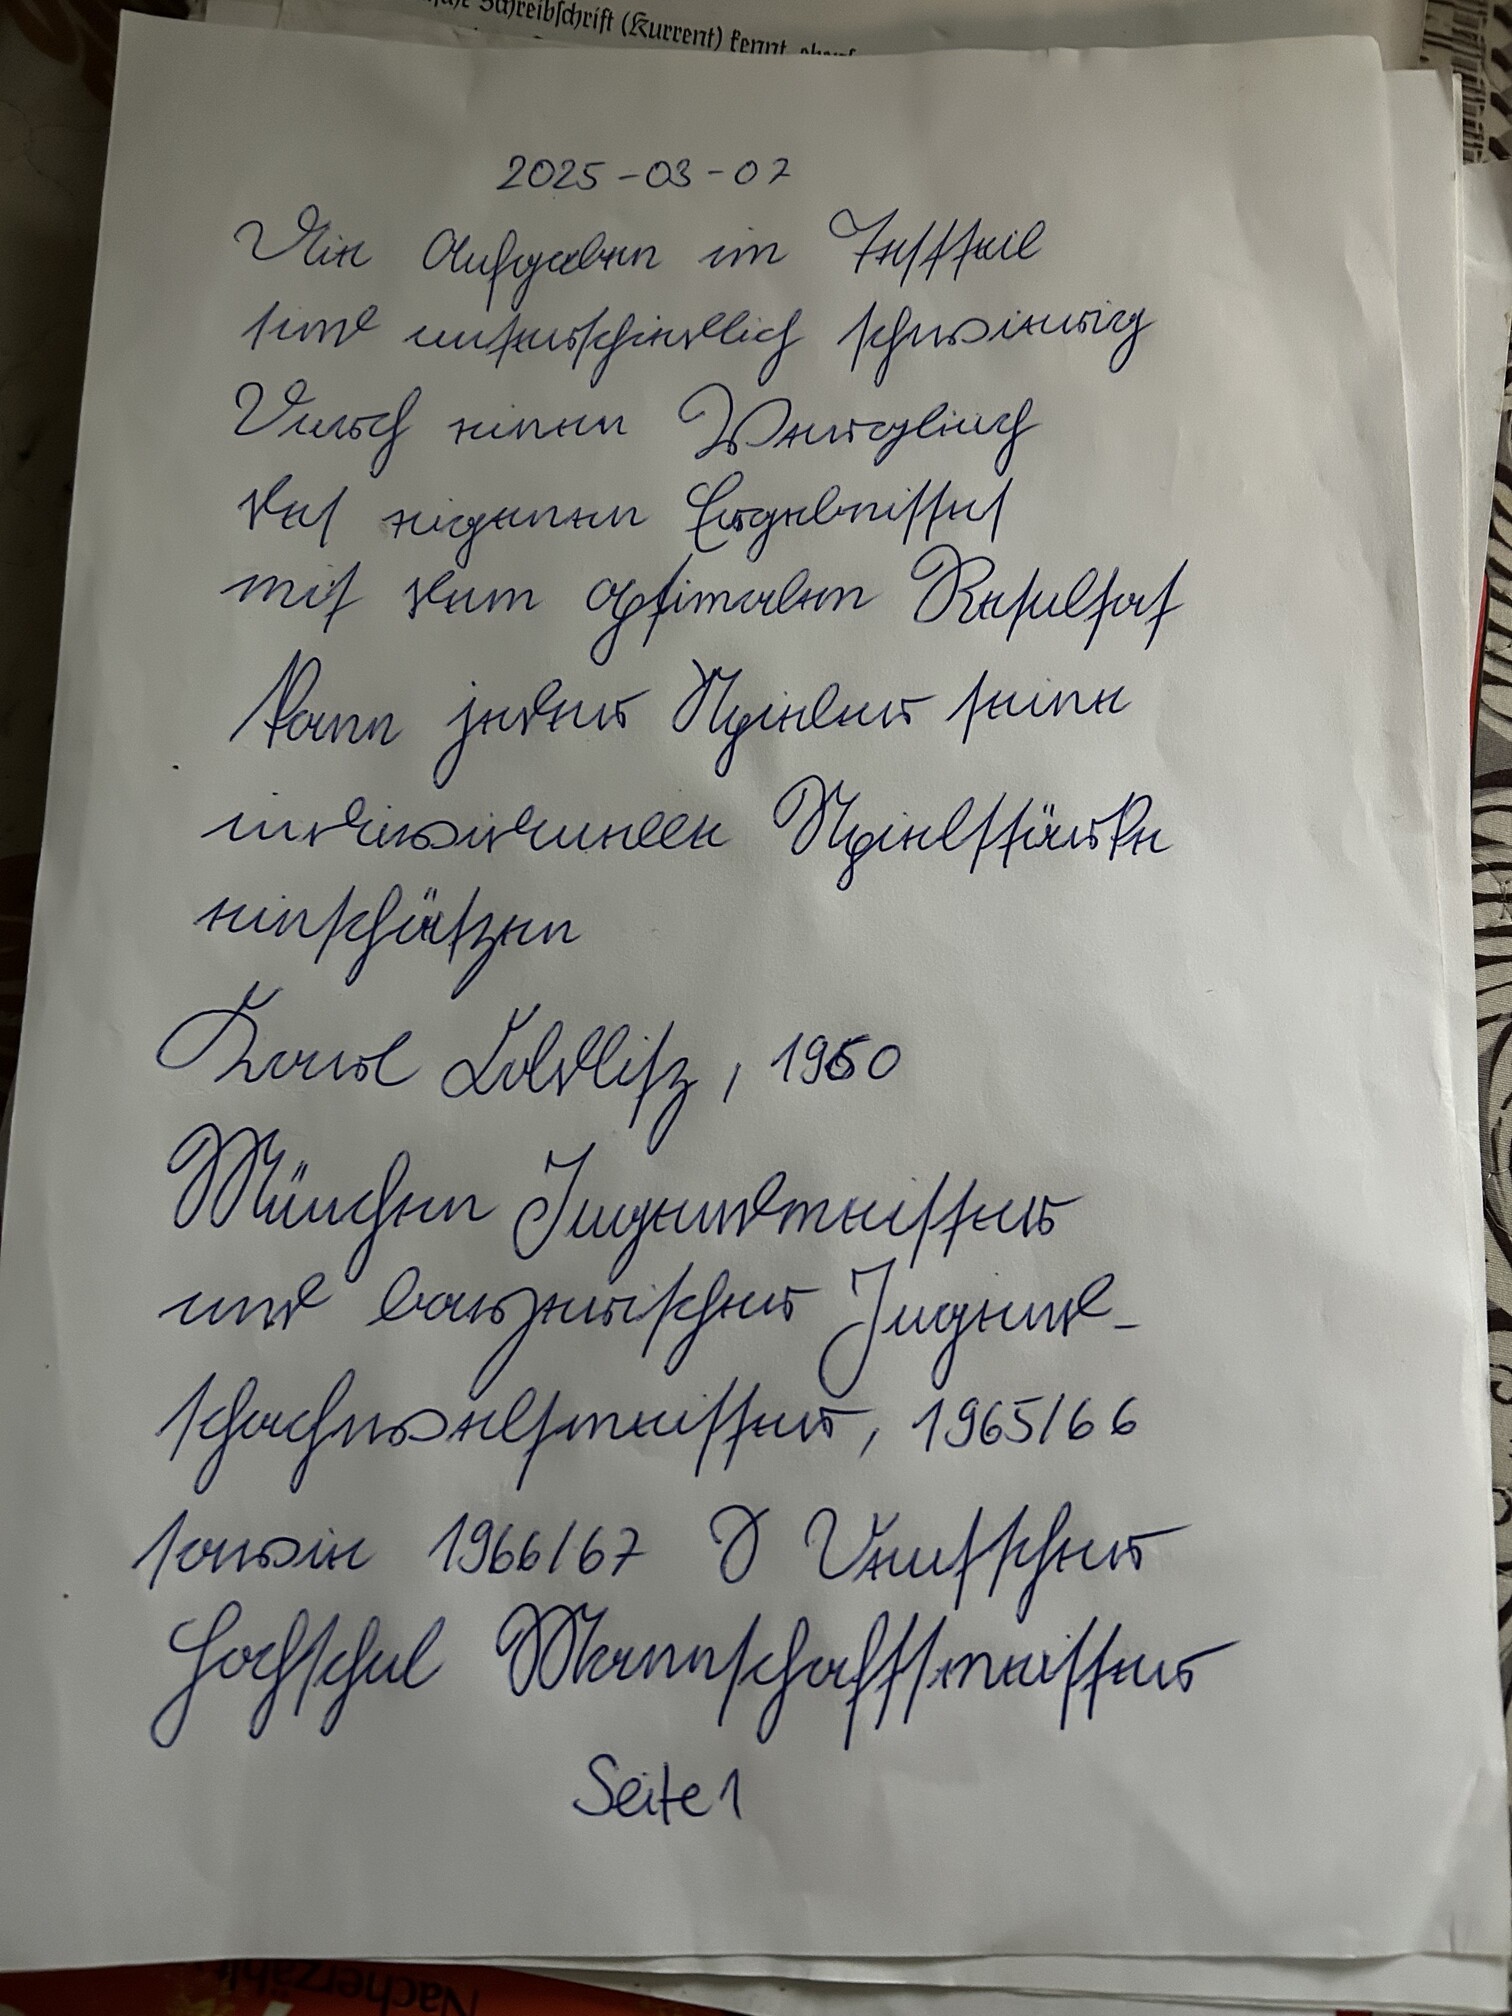 sche Schreibschrift (Kurrent) kennt,
2025-03-07
Die Aufgaben im Testteil
sind unterschiedlich schwierig
Durch einen Vergleich
des eigenen Ergebnisses
mit dem optimalen Resultat
kann jeder Spieler seine
individuelle Spielstärke
einschätzen
Karl Coldlitz, 1960
München Jugendmeister
und bayerischer Jugend-
schachweltmeister, 1965/66
sowie 1966/67 D Deutscher
Hochschul Mannschaftsmeister
Seite 1
Nacherzählt